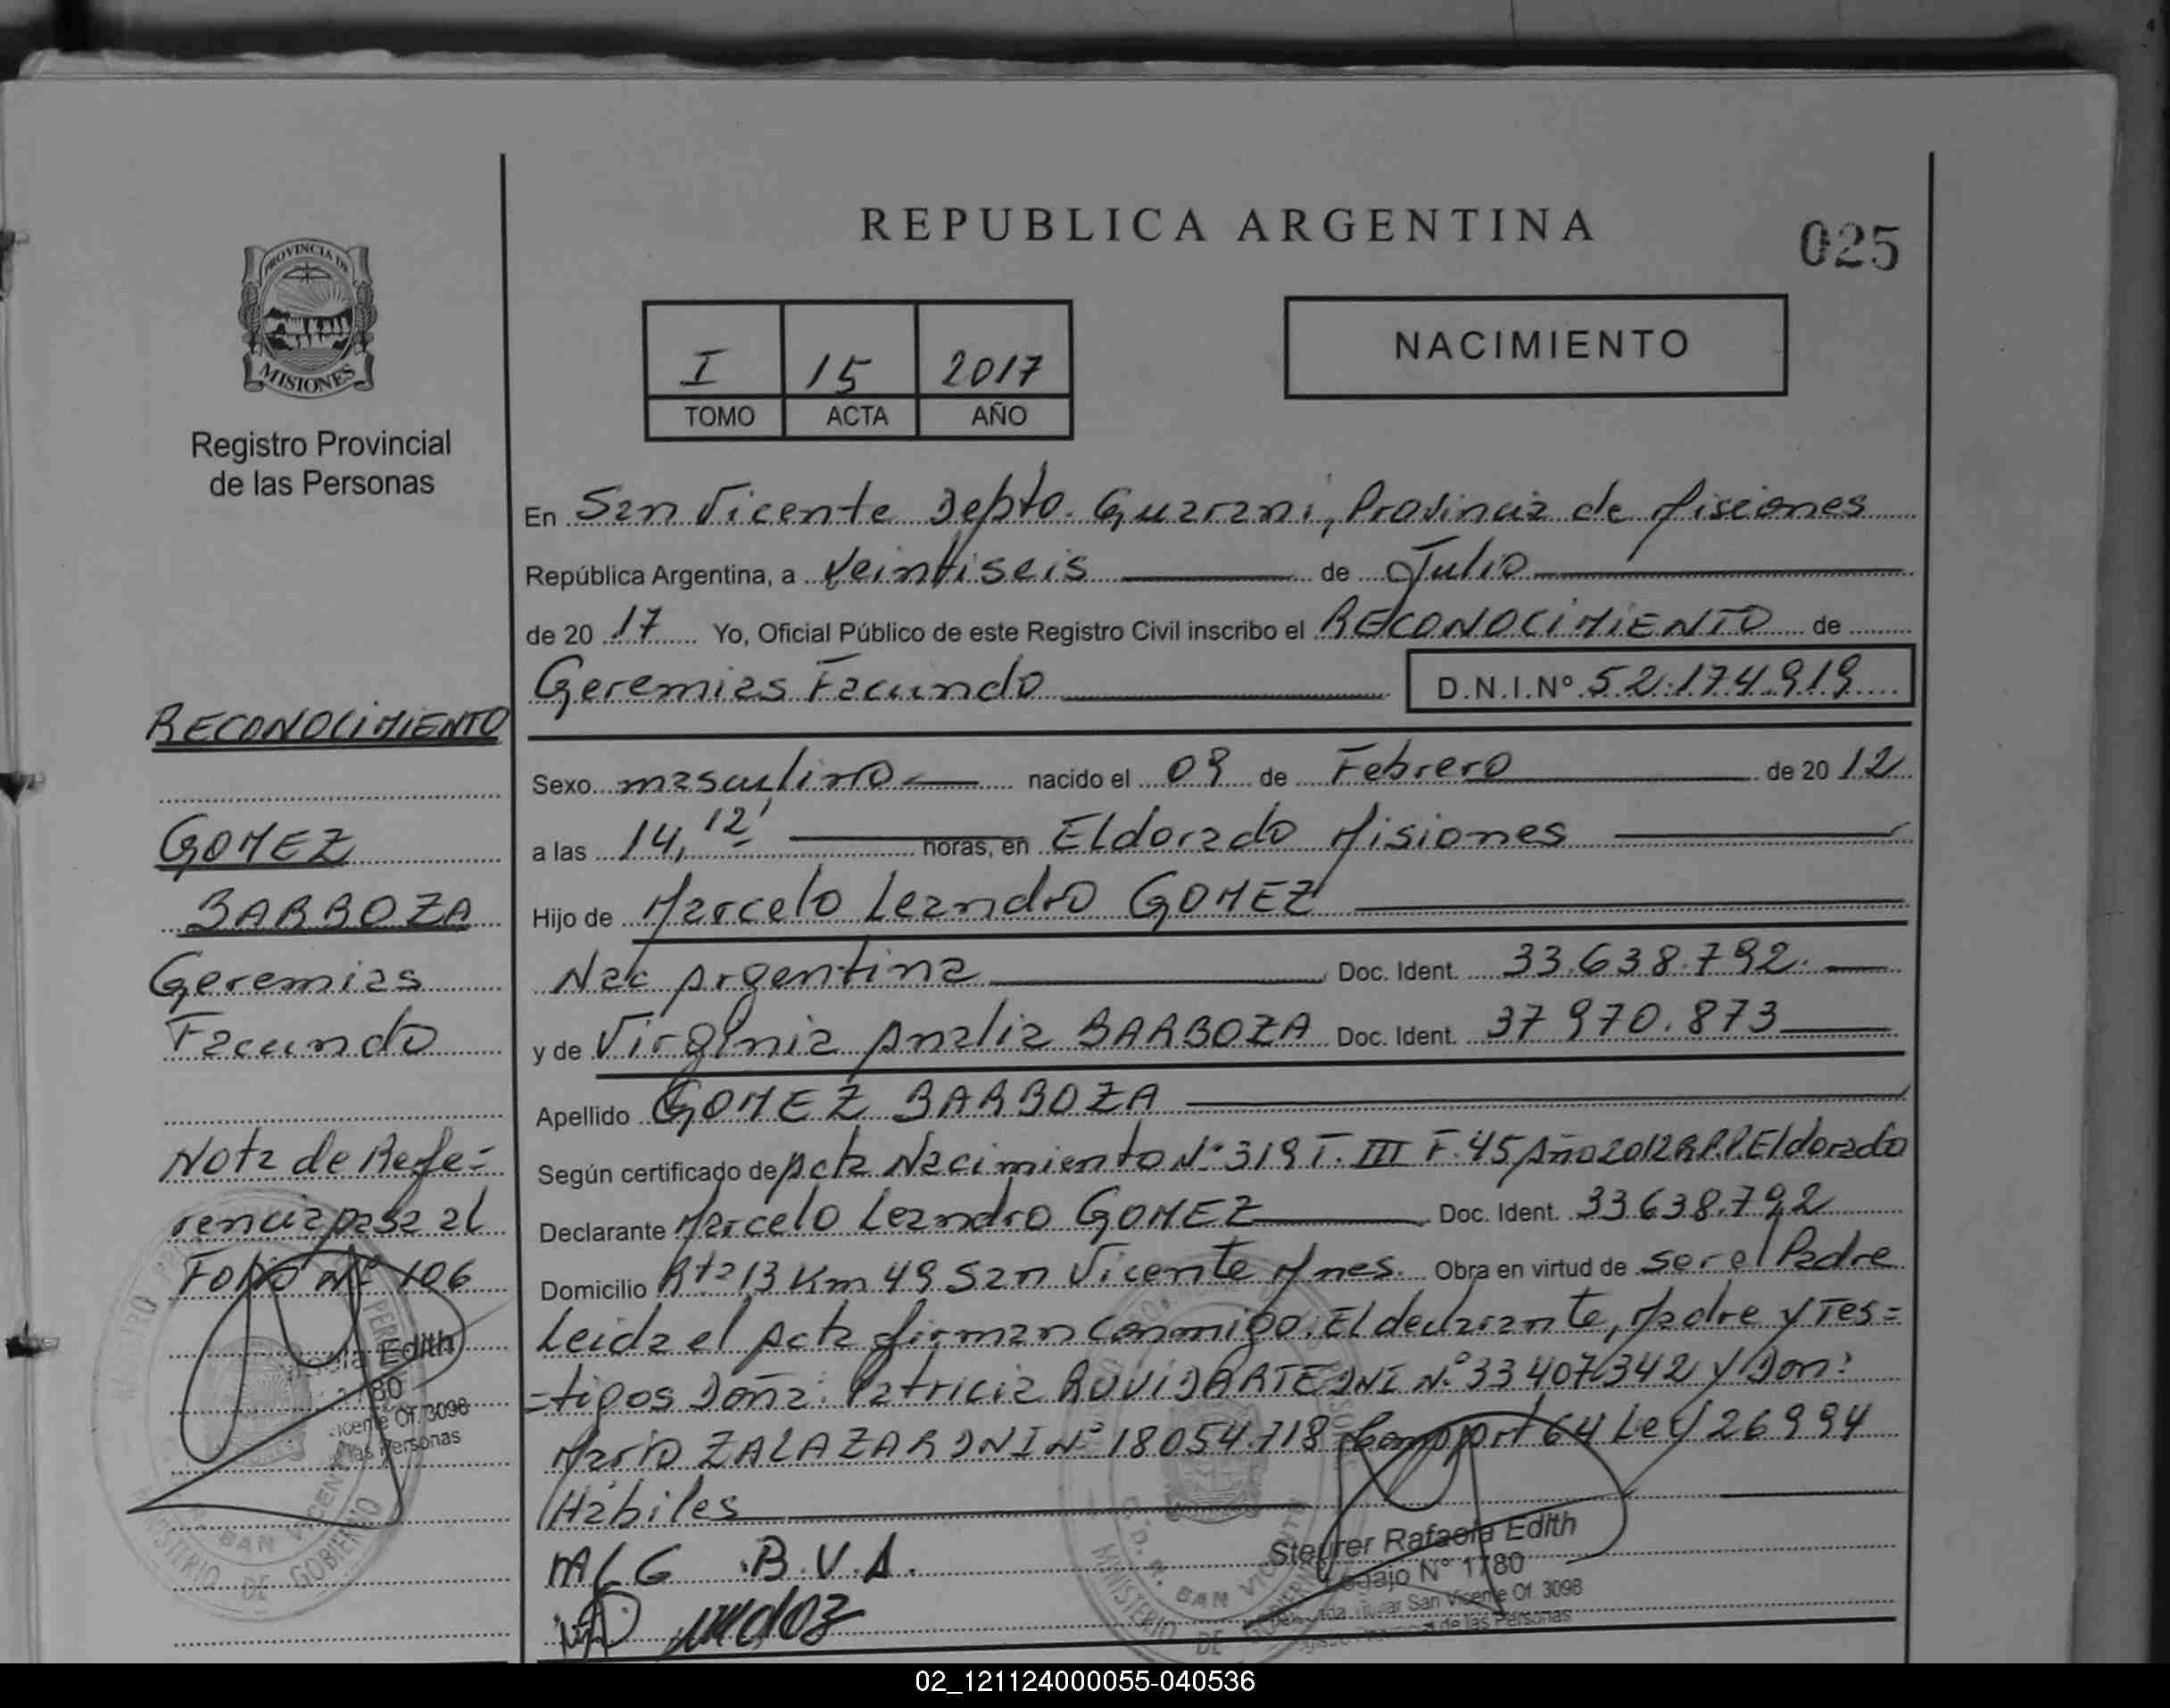 REPUBLICA ARGENTINA
025
PROVINCIA DE
MISIONES
Registro Provincial
de las Personas
I 15 2017
TOMO ACTA AÑO
NACIMIENTO
En San Vicente Depto. Guarani, Provincia de Misiones
República Argentina, a Veintiseis de Julio
de 20 17 Yo, Oficial Público de este Registro Civil inscribo el RECONOCIMIENTO de
Geremias Facundo D.N.I.Nº 52.174.919
Sexo masculino nacido el 09 de Febrero de 20 12
a las 14,12' horas, en Eldorado Misiones
Hijo de Marcelo Leandro GOMEZ
Nac Argentina Doc. Ident. 33.638.792.
y de Virginia Analia BARBOZA Doc. Ident. 37970.873
Apellido GOMEZ BARBOZA
Según certificado de Acta Nacimiento Nº 319 T. III F. 45 Año 2012 R.P.P. Eldorado
Declarante Marcelo Leandro GOMEZ Doc. Ident. 33638.792
Domicilio Rta 13 Km 49 San Vicente Mnes. Obra en virtud de ser el Padre
Leida el Acta firman Conmigo. El declarante, Madre y Tes=
=tigos Doña: Patricia ROVIDARTE DNI Nº 33407342 y Don:
Mario ZALAZAR DNI Nº 18054718 Art 64 Ley 26994
Habiles
MLG B.V.A.
Steurer Rafaela Edith
Legajo Nº 1780
San Vicente Of. 3098
de las Personas
RECONOCIMIENTO
GOMEZ
BARBOZA
Geremias
Facundo
Nota de Refe=
rencia pasa al
Folio Nº 106
Edith
Of. 3098
las Personas
MINISTERIO DE GOBIERNO
SAN VICENTE
MINISTERIO DE
SAN VICENTE
02_121124000055-040536